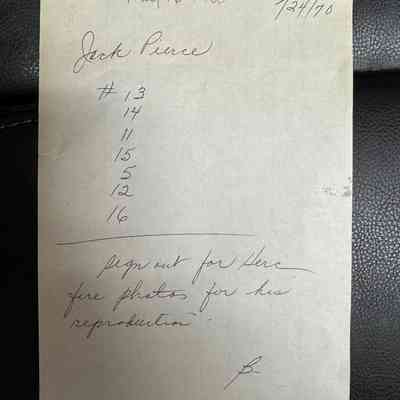 7/24/70
Jack Pierce
# 13
14
11
15
5
12
16
sign out for Herc
fire photos for his
reproduction.
B.